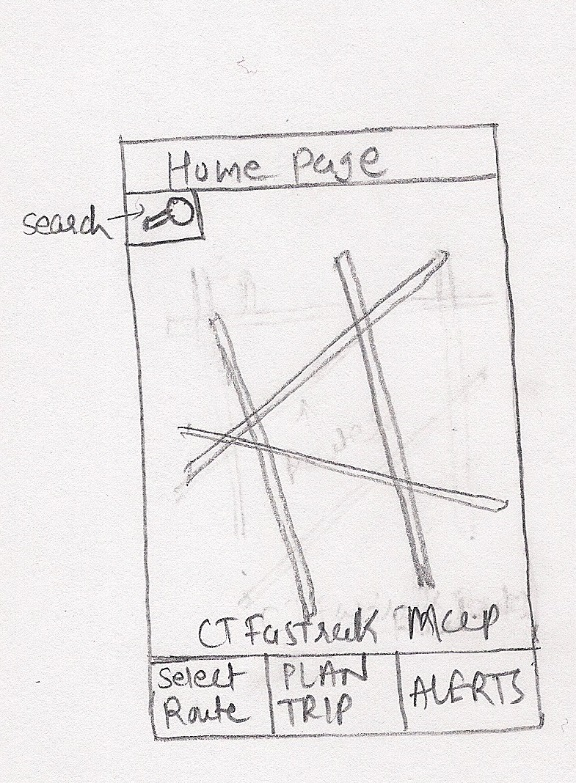 Home Page
search
CT Fastrak Map
Select Route
PLAN TRIP
ALERTS